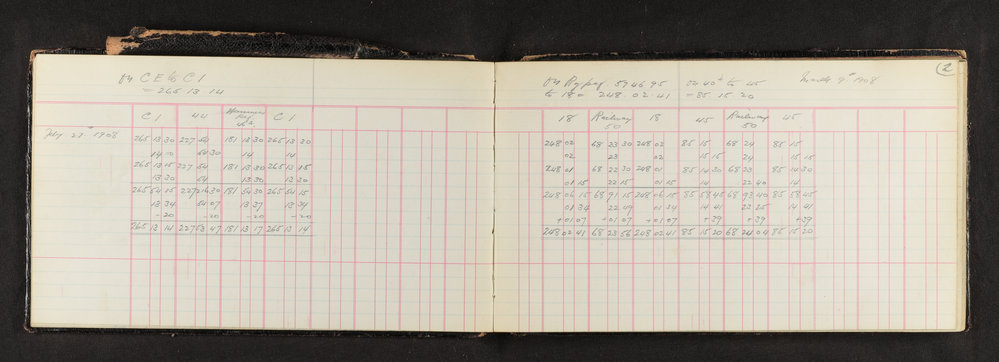 C E to C 1
= 265 13 14
C 1 44 C 1
1908
265 13 30 227 54 181 13 30 265 13 30
14 54 30 14 14
265 13 15 227 54 181 13 30 265 13 15
13 30 54 13 30 13 30
265 54 15 181 54 30 265 54 15
13 34 54 07 13 37 13 34
-20 -20 -20 -20
265 13 14 227 53 47 181 13 17 265 13 14
2
March 9th 1908
to 18 = 248.02.41 = 85.15.20
18 Railway 50 18 45 Railway 50 45
248 02 68 23 30 248 02 85 15 68 24 85 15
02 23 02 15 15 24 15 15
248 01 68 22 30 248 01 85 14 30 68 23 85 14 30
01 15 22 15 01 15 14 22 40 14
248 06 15 68 91 15 248 06 15 85 58 45 68 93 40 85 58 45
01 34 22 49 01 34 14 41 23 25 14 41
+01 07 +01 07 +01 07 +39 +39 +39
248 02 41 68 23 56 208 02 41 85 15 20 68 24 04 85 15 20